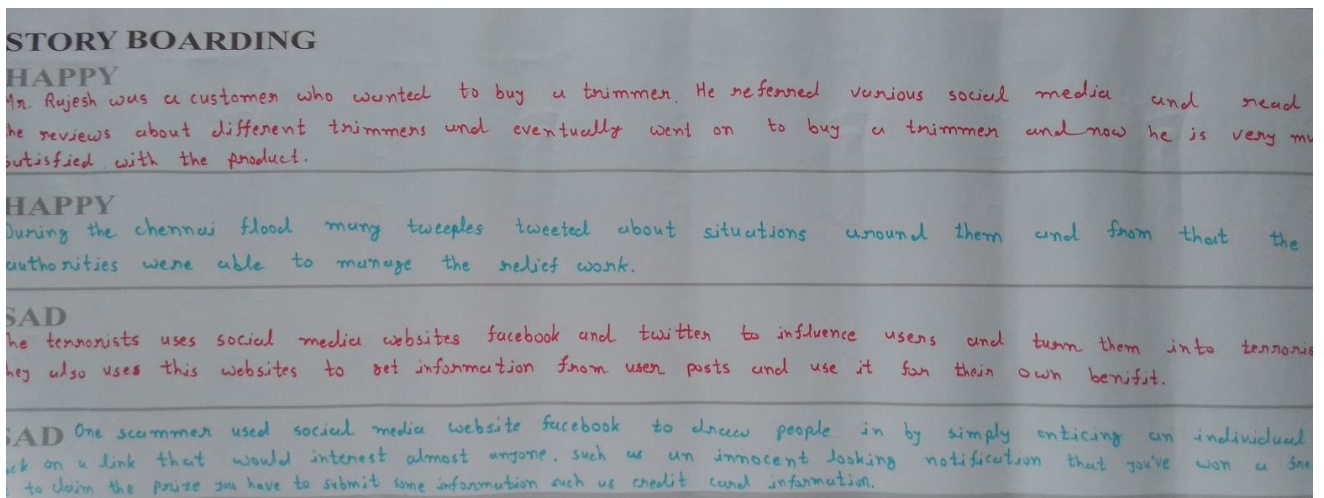 STORY BOARDING
HAPPY
Mr. Rajesh was a customer who wanted to buy a trimmer. He referred various social media and read
he reviews about different trimmers and eventually went on to buy a trimmer and now he is very mu
satisfied with the product.
HAPPY
During the chennai flood many tweeples tweeted about situations around them and from that the
authorities were able to manage the relief work.
SAD
he terrorists uses social media websites facebook and twitter to influence users and turn them into terroris
hey also uses this websites to get information from user posts and use it for their own benifit.
SAD One scammer used social media website facebook to draw people in by simply enticing an individual
ck on a link that would interest almost anyone, such as an innocent looking notification that you've won a fre
to claim the prize you have to submit some information such as credit card information.